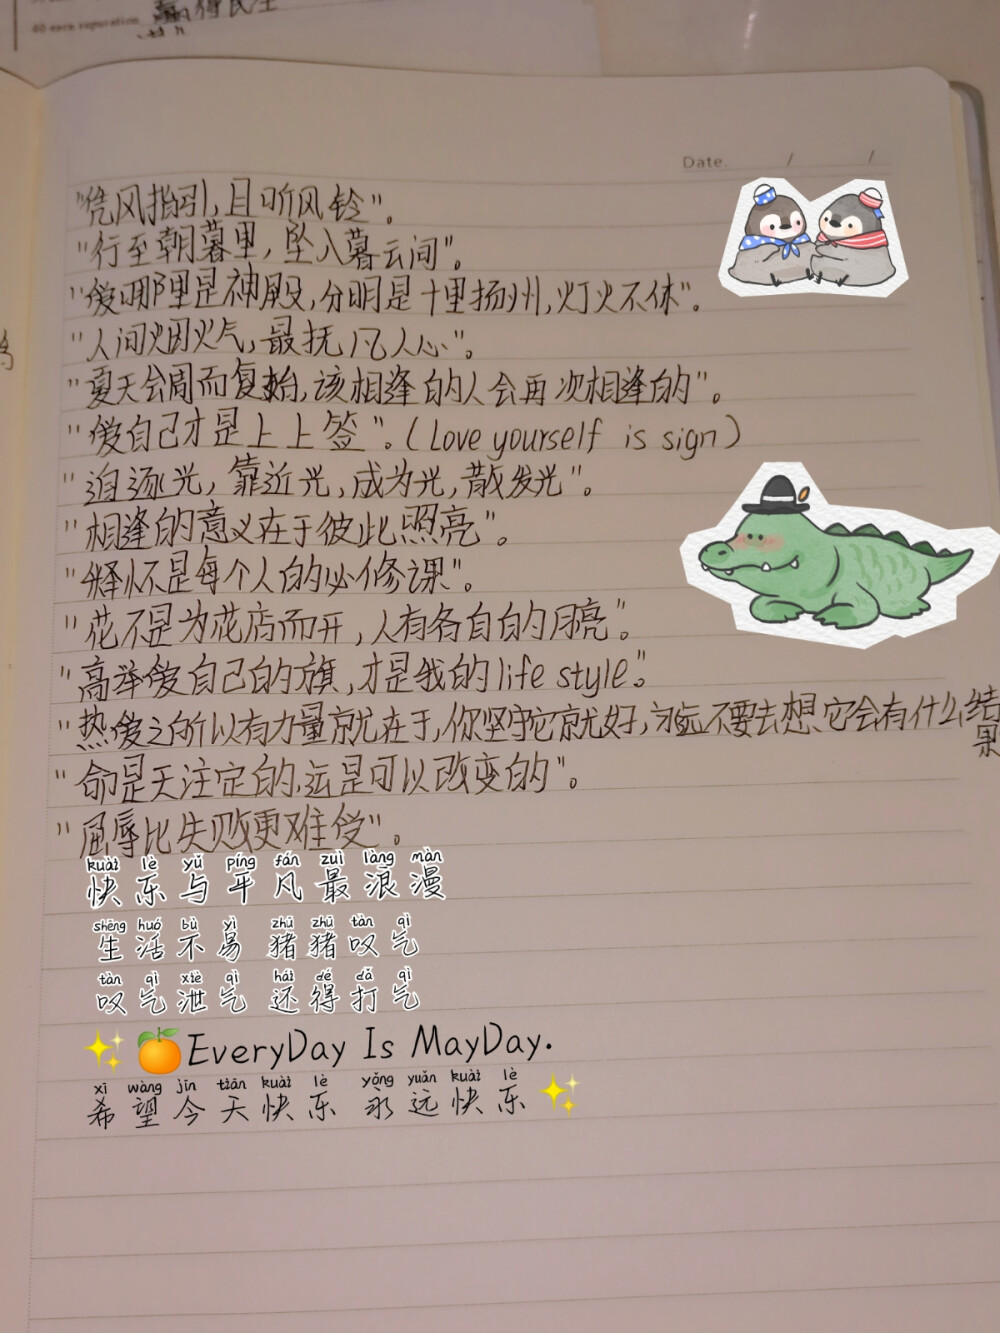 40 each separation.
赢得民主
Date. / /
"凭风指引,且听风铃"。
"行至朝暮里,坠入暮云间"。
"爱哪里是神殿,分明是十里扬州,灯火不休"。
"人间烟火气,最抚凡人心"。
"夏天会周而复始,该相逢的人会再次相逢的"。
"爱自己才是上上签"。(Love yourself is sign)
"追逐光,靠近光,成为光,散发光"。
"相逢的意义在于彼此照亮"。
"释怀是每个人的必修课"。
"花不是为花店而开,人有各自的月亮"。
"高举爱自己的旗,才是我的life style。"
"热爱之所以有力量就在于,你坚守它就好,永远不要去想、它会有什么结果
"命是天注定的,运是可以改变的"。
"屈辱比失败更难受"。
kuài lè yǔ píng fán zuì làng màn
快乐与平凡最浪漫
shēng huó bù yì zhū zhū tàn qì
生活不易 猪猪叹气
tàn qì xiè qì hái dé dǎ qì
叹气泄气 还得打气
✨🍊EveryDay Is MayDay.
xī wàng jīn tiān kuài lè yǒng yuǎn kuài lè
希望今天快乐 永远快乐✨